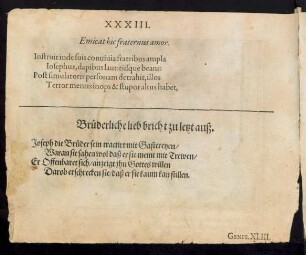 XXXIII.
Emicat hic fraternus amor.
Instruit inde sui conuiuia fratribus ampla
Iosephus, dapibus lautitiisque beans
Post simulatoris personam detrahit, illos
Terror mentis inops & stupor altus habet.
Brüderliche lieb bricht zu letzt auß.
Joseph die Brüder sein tractirt mit Gastereyen/
Waran sie sahen wol daß er sie meint mit Trewen/
Er Offenbaret sich/ anzeigt ihn Gottes willen
Darob erschrecken sie daß er sie kaum kan stillen.
GENES. XLIII.